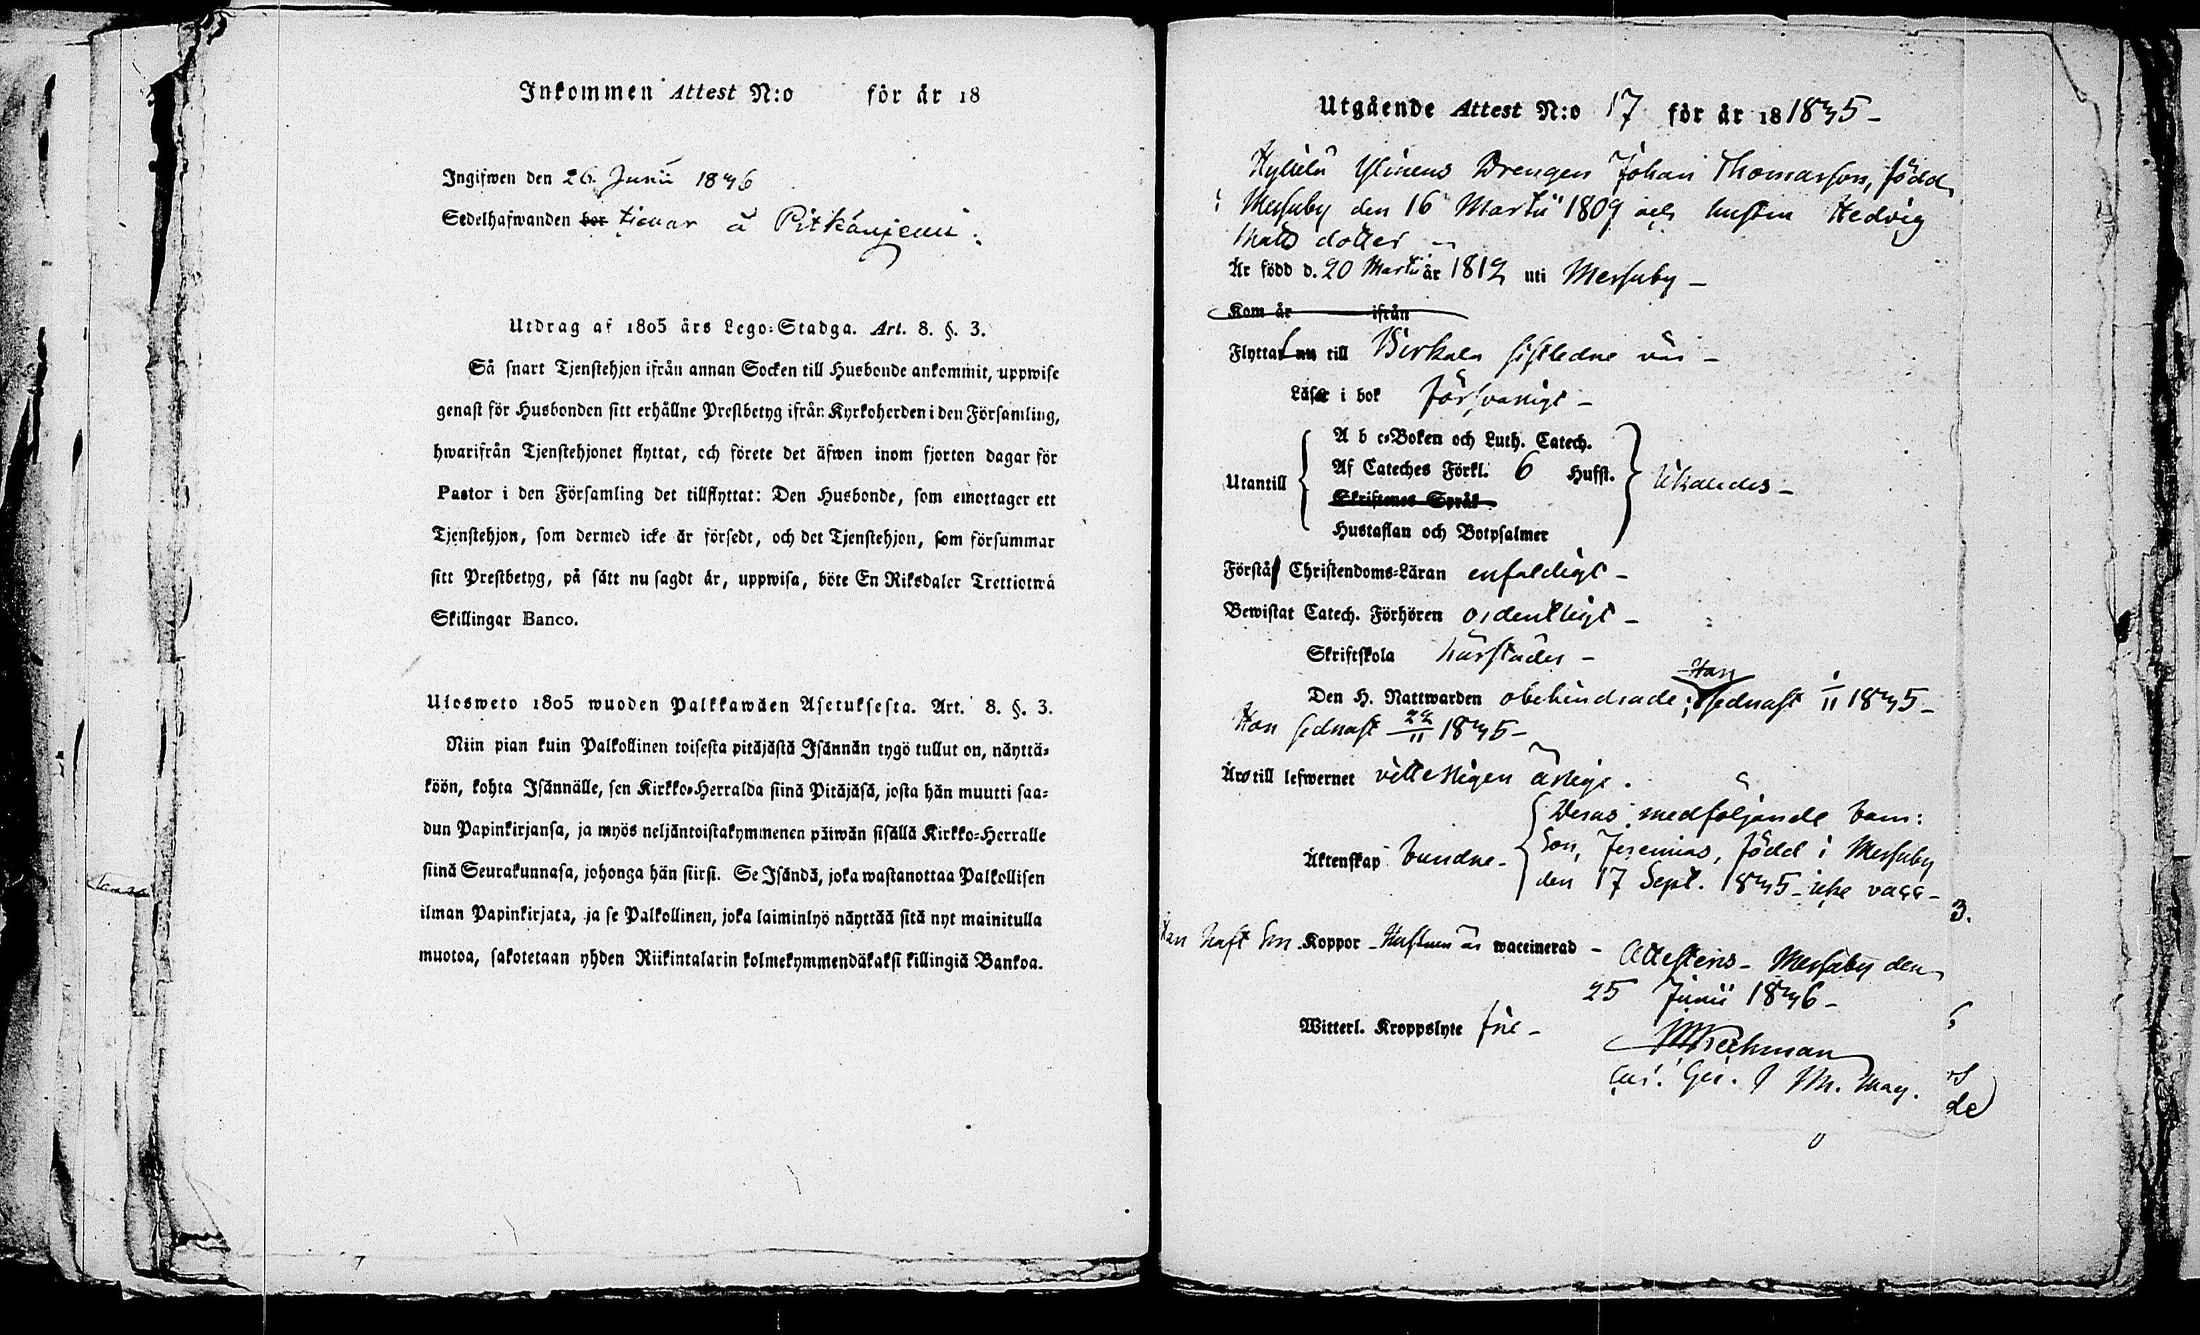 Inkommen Attest N:o för år 18
Ingifwen den 26. Junii 1836
Sedelhafwanden bor tienar å Pitkäniemi.
Utdrag af 1805 års Lego-Stadga. Art. 8. §. 3.
Så snart Tjenstehjon ifrån annan Socken till Husbonde ankommit, uppwise
genast för Husbonden sitt erhållne Prestbetyg ifrån Kyrkoherden i den Församling,
hwarifrån Tjenstehjonet flyttat, och förete det äfwen inom fjorton dagar för
Pastor i den Församling det tillflyttat: Den Husbonde, som emottager ett
Tjenstehjon, som dermed icke är försedt, och det Tjenstehjon, som försummar
sitt Prestbetyg, på sätt nu sagdt är, uppwisa, böte En Riksdaler Trettiotwå
Skillingar Banco.
Ulosweto 1805 wuoden Palkkawäen Asetuksesta. Art. 8. §. 3.
Niin pian kuin Palkollinen toisesta pitäjästä Isännän tygö tullut on, näyttä-
köön, kohta Isännälle, sen Kirkko-Herralda siinä Pitäjäsä, josta hän muutti saa-
dun Papinkirjansa, ja myös neljäntoistakymmenen päiwän sisällä Kirkko-Herralle
siinä Seurakunnasa, johonga hän siirsi. Se Isändä, joka wastanottaa Palkollisen
ilman Papinkirjata, ja se Palkollinen, joka laiminlyö näyttää sitä nyt mainitulla
muotoa, sakotetaan yhden Riikintalarin kolmekymmendäkaksi killingiä Bankoa.
Utgående Attest N:o 17 för år 18 1835 -
Drengen Johan Thomasson, född
i Messuby den 16 Martii 1809 och hustru Hedvig
Mats dotter
Är född d. 20 Martii år 1812 uti Messuby -
Kom år ifrån
Flyttat nu till Birkala sistledne vår -
Läser i bok försvarligt -
A b c-Boken och Luth. Catech.
Af Cateches Förkl. 6 Hufst.
Utantill
Skriftenes Språk
Hustaflan och Botpsalmer
Förstår Christendoms-Läran enfaldigt -
Bewistat Catech. Förhören ordentligt -
Skriftskola härstädes -
Han
Den H. Nattwarden obehindrade; sednast 1/11 1835 -
Hon sednast 22/11 1835 -
Äro till lefwernet vitterligen ärlige.
Deras medföljande barn:
Äktenskap bundne - Son, Jeremias, född i Messuby
den 17 Sept. 1835 - icke vacc -
3.
Han haft Koppor - Hustrun är waccinerad - Attesteras - Messuby den
25 Junii 1836 -
Witterl. Kroppslyte frie -
de